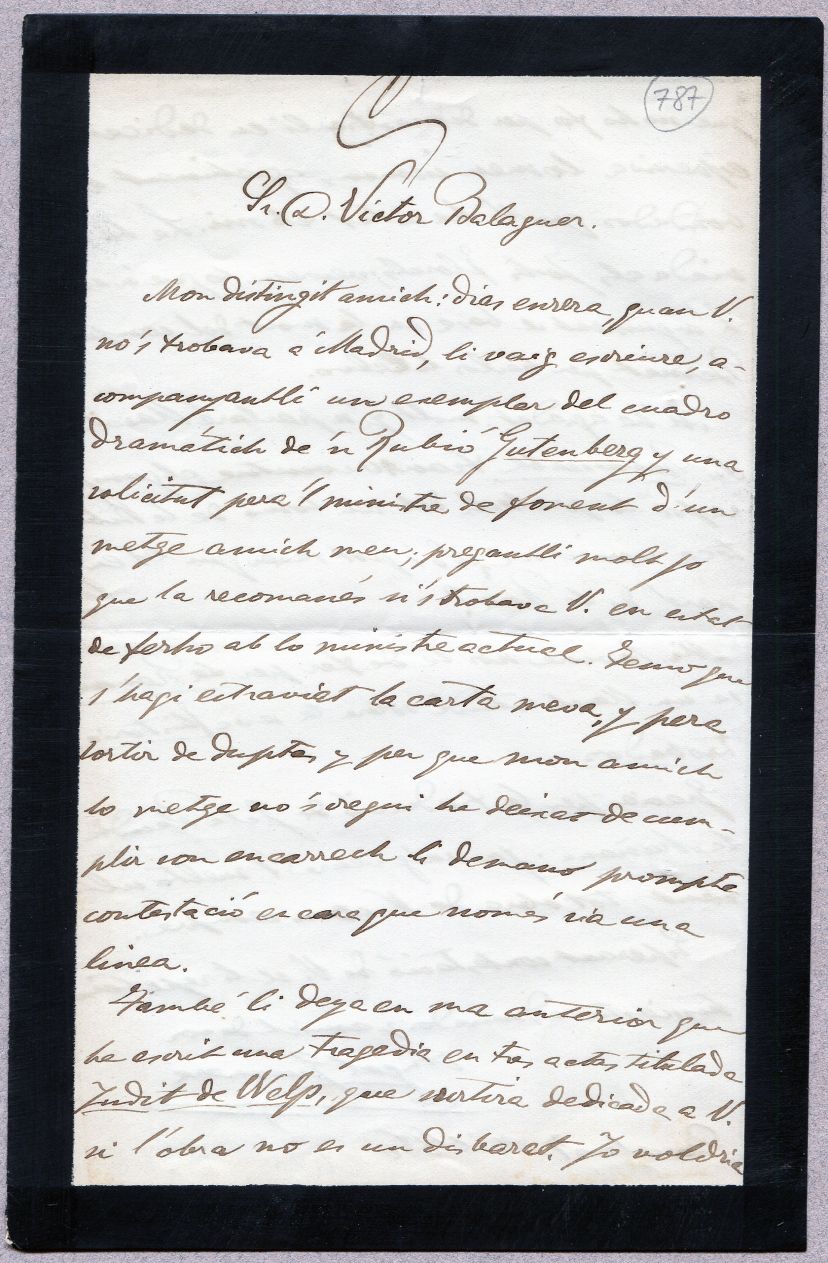 787
Sr. D. Víctor Balaguer.
Mon distingit amich: dias enrera, quan V.
no's trobava á Madrid, li vaig escriure, a-
companyantli un exemplar del cuadro
dramátich de 'n Rubió Gutenberg y una
solicitut pera 'l ministre de foment d'un
metge amich meu; pregantli molt jo
que la recomanés si's trobava V. en estat
de ferho ab lo ministre actual. Temo que
s'hagi estraviat la carta meva, y pera
sortir de duptes y per que mon amich
lo metge no's cregui he deixat de cum-
plir son encarrech li demano prompte
contestació encara que només sia una
linea.
També li deya en ma anterior que
he escrit una tragedia en tres actes titulada
Judit de Welp, que sortirá dedicada a V.
si l'obra no es un disbarat. Jo voldria